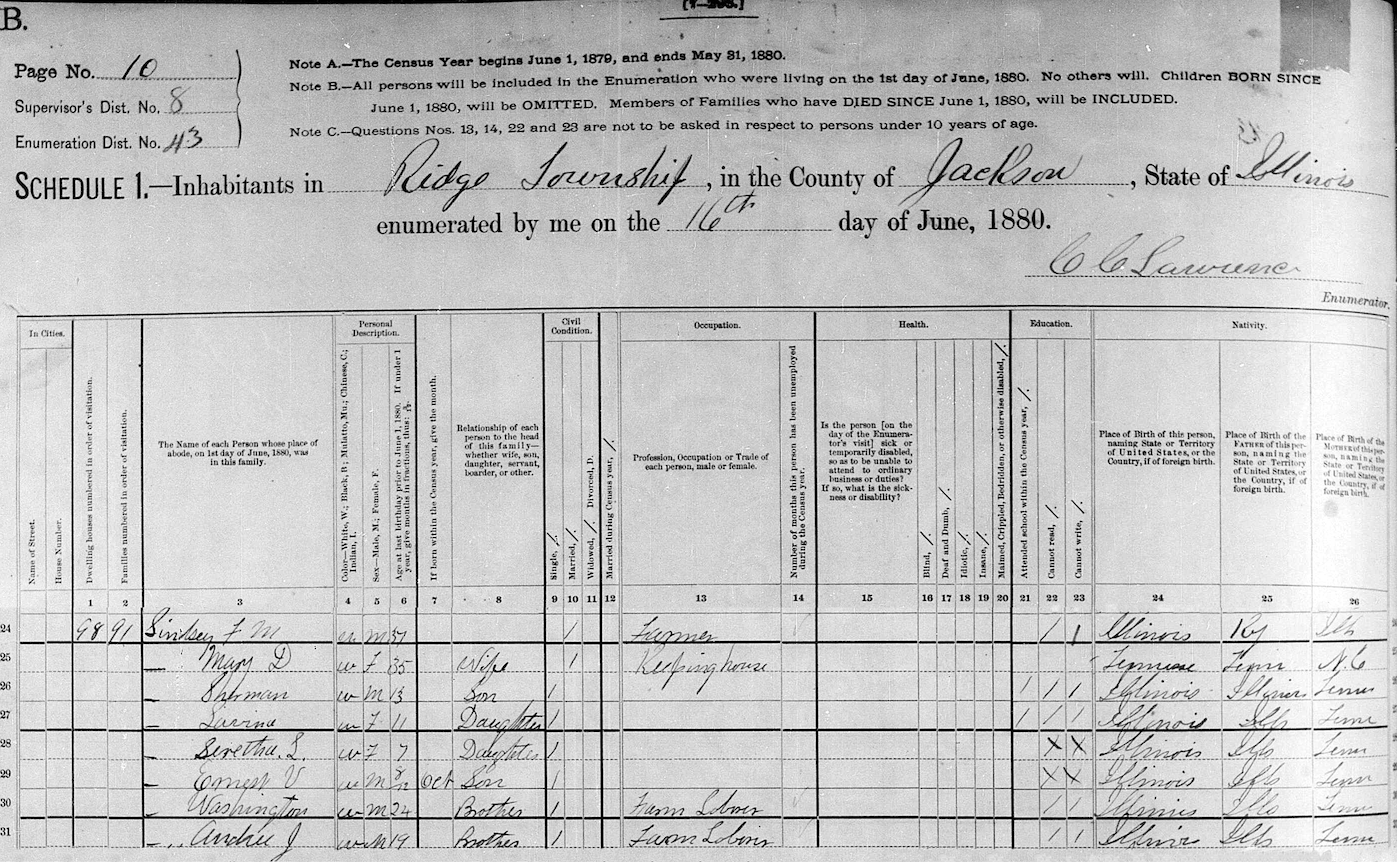 B.
[7-296.]
Page No. 10
Supervisor's Dist. No. 8
Enumeration Dist. No. 43
Note A.—The Census Year begins June 1, 1879, and ends May 31, 1880.
Note B.—All persons will be included in the Enumeration who were living on the 1st day of June, 1880. No others will. Children BORN SINCE
June 1, 1880, will be OMITTED. Members of Families who have DIED SINCE June 1, 1880, will be INCLUDED.
Note C.—Questions Nos. 13, 14, 22 and 23 are not to be asked in respect to persons under 10 years of age.
SCHEDULE 1.—Inhabitants in Ridge Township, in the County of Jackson, State of Illinois
enumerated by me on the 16th day of June, 1880.
C C Lawrence
Enumerator.
In Cities. Personal Description. Civil Condition. Occupation. Health. Education. Nativity.
Name of Street.
House Number.
Dwelling houses numbered in order of visitation.
Families numbered in order of visitation.
The Name of each Person whose place of
abode, on 1st day of June, 1880, was
in this family.
Color—White, W.; Black, B.; Mulatto, Mu.; Chinese, C.;
Indian, I.
Sex—Male, M.; Female, F.
Age at last birthday prior to June 1, 1880. If under 1
year, give months in fractions, thus: 3/12
If born within the Census year, give the month.
Relationship of each
person to the head
of this family—
whether wife, son,
daughter, servant,
boarder, or other.
Single, /.
Married, /.
Widowed, /. Divorced, D.
Married during Census year, /.
Profession, Occupation or Trade of
each person, male or female.
Number of months this person has been unemployed
during the Census year.
Is the person [on the
day of the Enumera-
tor's visit] sick or
temporarily disabled,
so as to be unable to
attend to ordinary
business or duties?
If so, what is the sick-
ness or disability?
Blind, /.
Deaf and Dumb, /.
Idiotic, /.
Insane, /.
Maimed, Crippled, Bedridden, or otherwise disabled, /.
Attended school within the Census year, /.
Cannot read, /.
Cannot write, /.
Place of Birth of this person,
naming State or Territory
of United States, or the
Country, if of foreign birth.
Place of Birth of the
FATHER of this per-
son, naming the
State or Territory
of United States, or
the Country, if of
foreign birth.
Place of Birth of the
MOTHER of this per-
son, naming the
State or Territory
of United States, or
the Country, if of
foreign birth.
1 2 3 4 5 6 7 8 9 10 11 12 13 14 15 16 17 18 19 20 21 22 23 24 25 26
24 98 91 Lindsey F M w M 37 / Farmer / / Illinois Ky Ills
25 — Mary D w F 35 Wife / Keeping house Tennessee Tenn N.C
26 — Sherman w M 13 Son / / / / Illinois Illinois Tenn
27 — Lavina w F 11 Daughter / / / / Illinois Ills Tenn
28 — Seretha L. w F 7 Daughter / X X Illinois Ills Tenn
29 — Ernest V w M 8/12 Oct Son / X X Illinois Ills Tenn
30 — Washington w M 24 Brother / Farm Laborer / / Illinois Ills Tenn
31 — Andrew J w M 19 Brother / Farm Laborer / / Illinois Ills Tenn